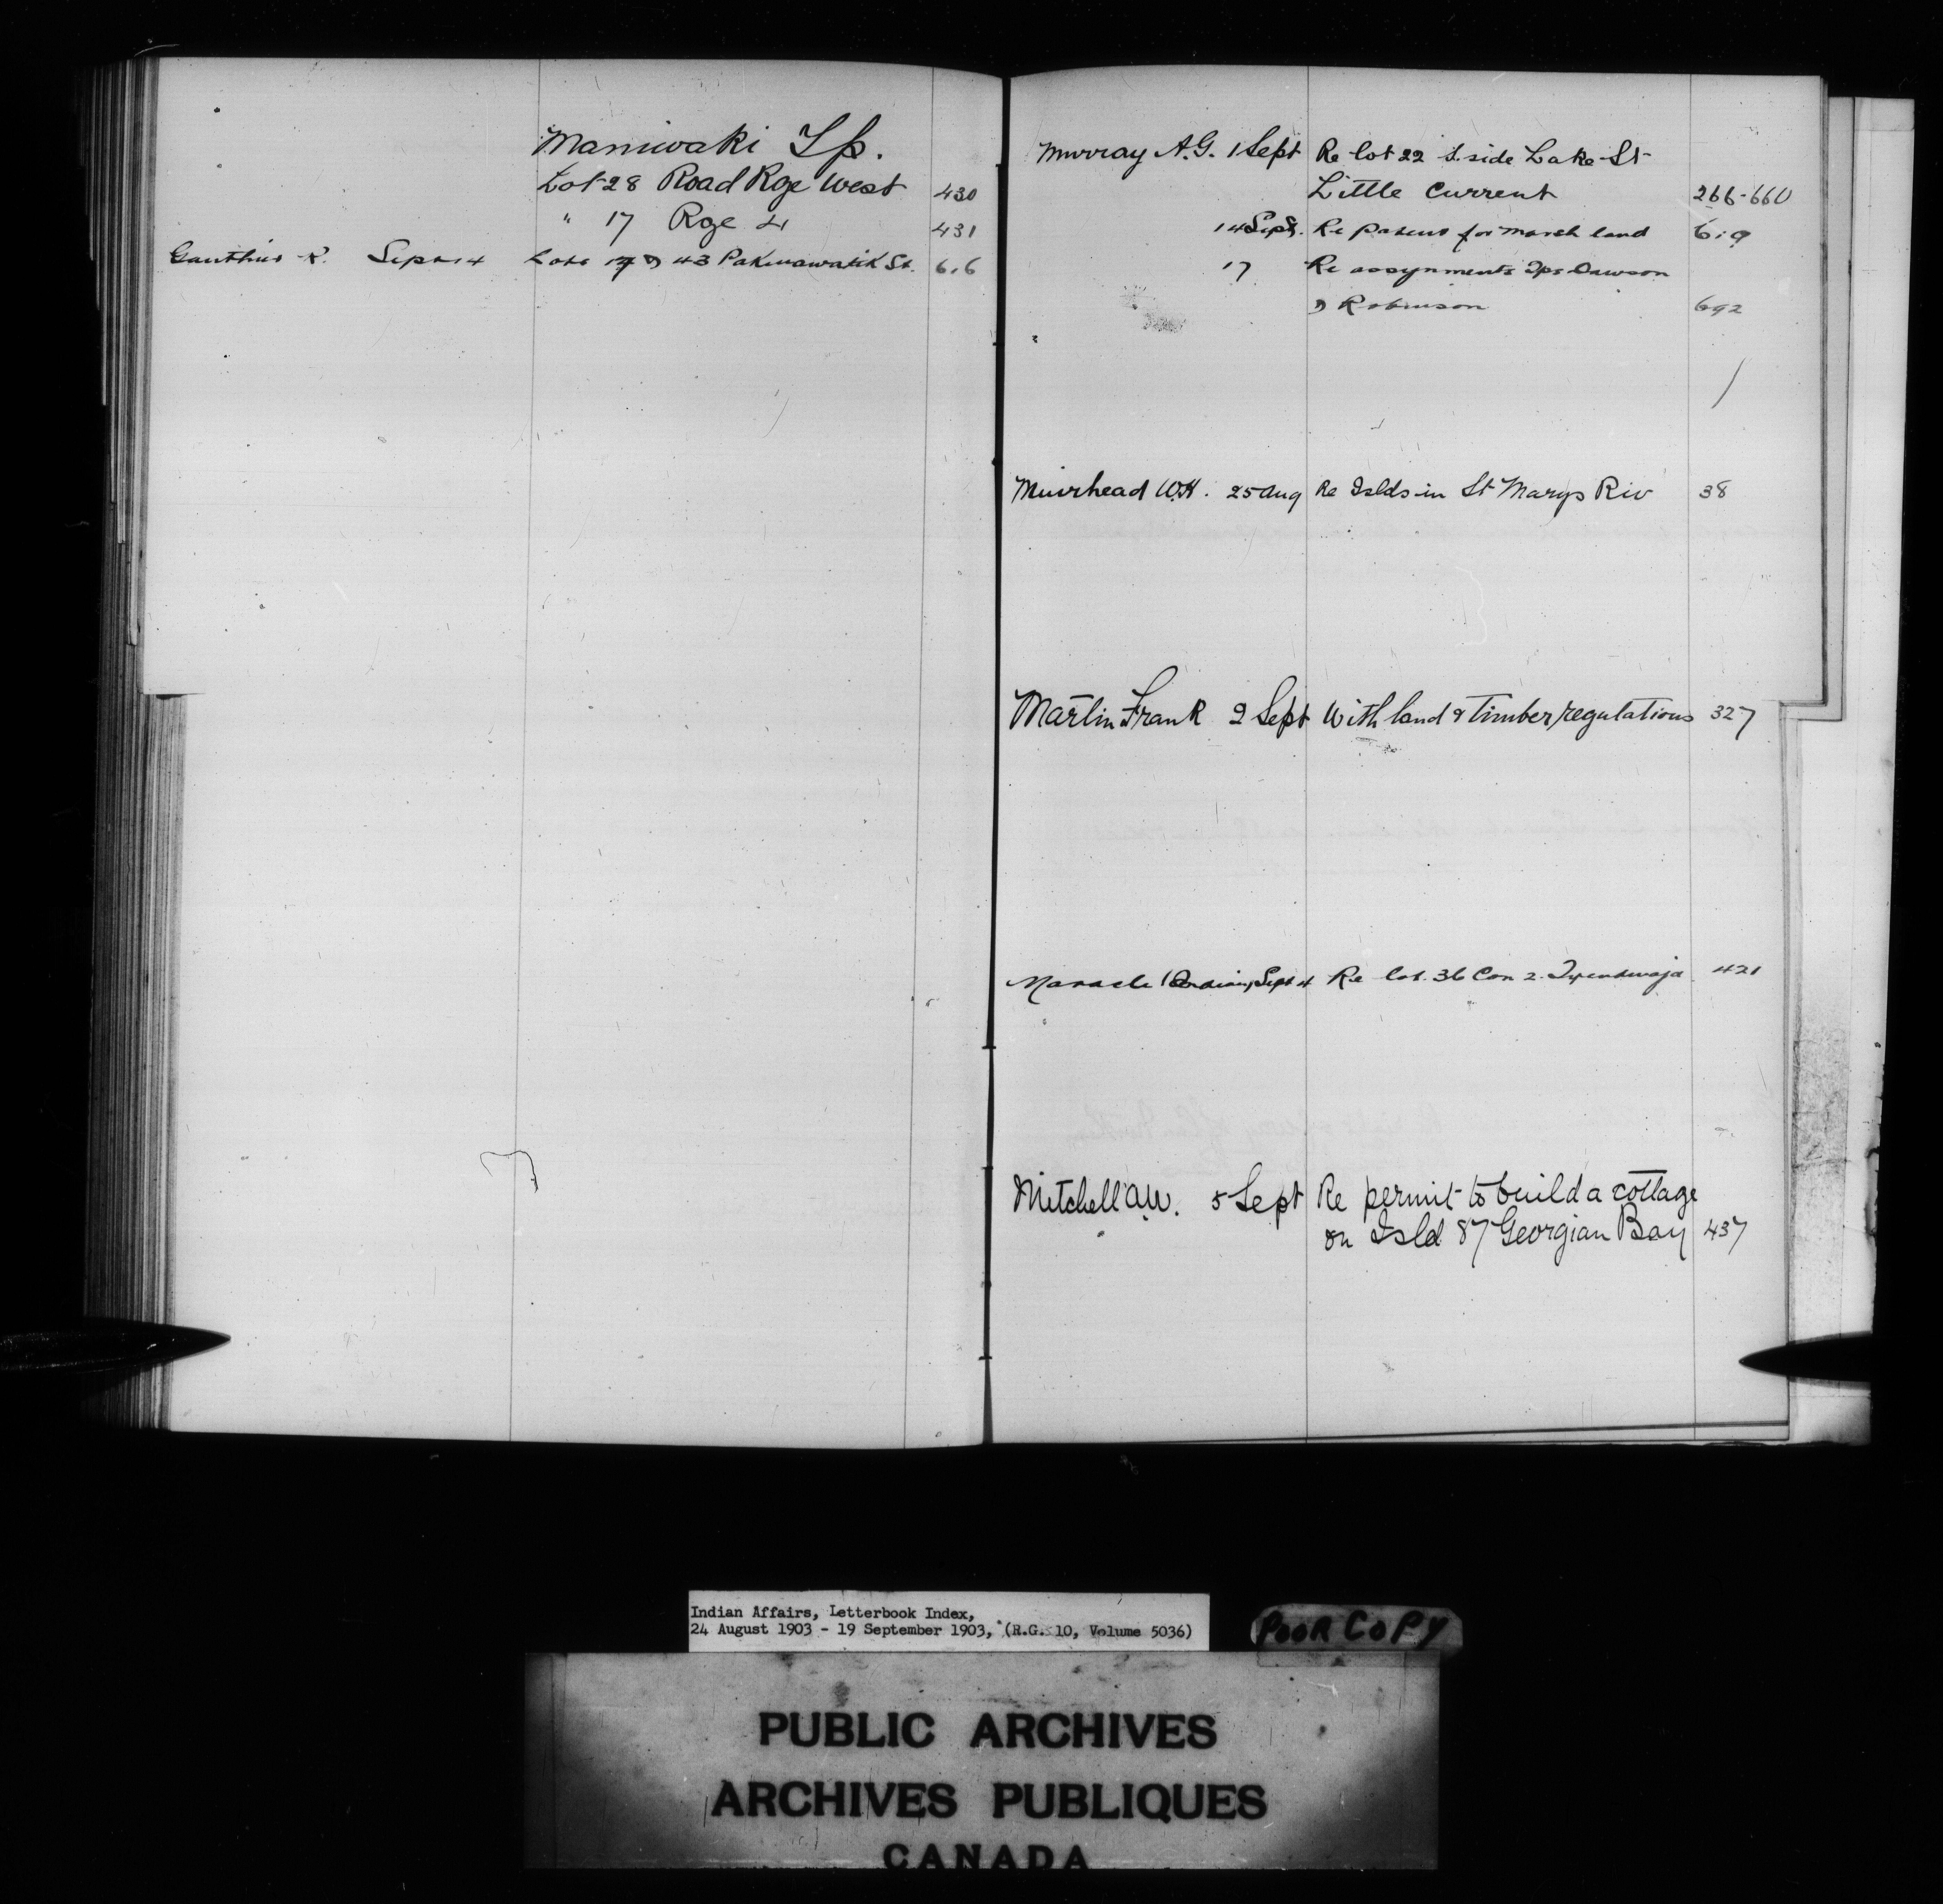 Maniwaki Tp.
Lot 28 Road Rge West 430
" 17 Rge 4 431
Gauthier R. Sept 14 Lots 43 Pakinawatik St. 616
Murray A.G. 1 Sept Re lot 22 S. side Lake St
Little Current 266-660
14 Sept. Re patent for marsh land 619
17 Re assignments Tps Dawson
& Robinson 692
Muirhead W.H. 25 Aug Re Islds in St Marys Riv 38
Martin Frank 2 Sept With land & Timber regulations 327
Maracle Sept 4 Re lot 36 Con 2. Tyendinaga 421
Mitchell A.W. 5 Sept Re permit to build a cottage
on Isld 87 Georgian Bay 437
Indian Affairs, Letterbook Index,
24 August 1903 - 19 September 1903, (R.G. 10, Volume 5036)
POOR COPY
PUBLIC ARCHIVES
ARCHIVES PUBLIQUES
CANADA